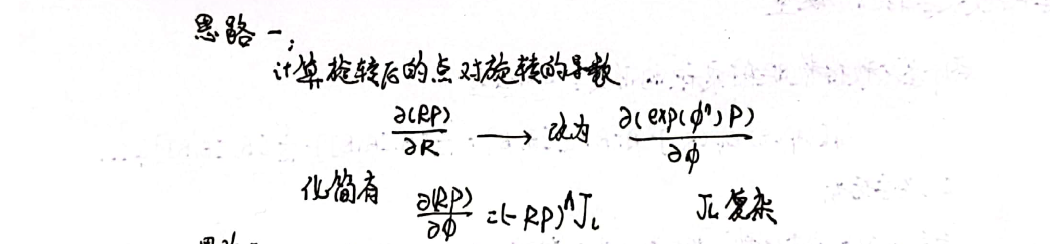 思路一:
计算旋转后的点对旋转的导数
∂(RP)/∂R ⟶ 改为 ∂(exp(ϕ^)P)/∂ϕ
化简有 ∂(RP)/∂ϕ =(-RP)^J_L J_L 复杂